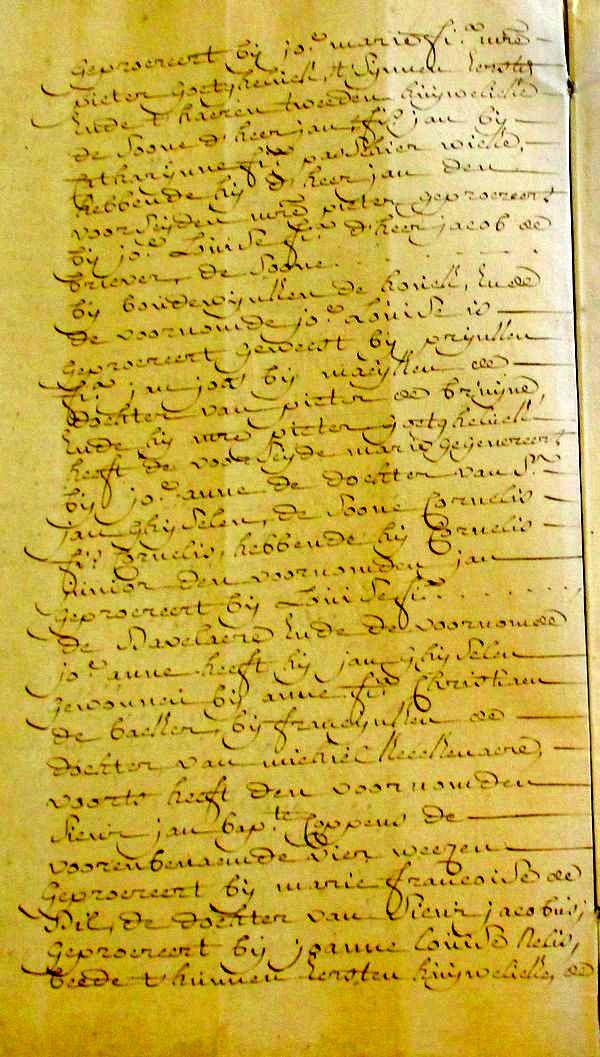 geprocreert bij jo.e marie f.a m.re
pieter goetghebuer, t'synnen eersten
ende t'haeren tweeden huijwelicke
de soone d'heer jan, f.s jan bij
Catharijnne f.a paschier wielle,
hebbende hij d'heer jan den
voorseijden m.re pieter geprocreert
bij jo.e Louise f.a d'heer jacob de
briever, de soone . . . . . .
bij boudewijnken de honick, ende
de voornomde jo.e Louise is
geprocreert geweest bij prijnken
f.a jan jors bij maeijken de
dochter van pieter de bruijne,
Ende hij m.re pieter goetghebuer
heeft de voorseijde marie gegenereert
bij jo.e anne de dochter van S.r
jan Ghijselen, de soone Cornelis
f.s Cornelis, hebbende hij Cornelis
junior den voornomden jan
geprocreert bij Louise f.a . . . . . . .
de Bavelaere Ende de voornomde
jo.e anne heeft hij jan Ghijselen
gewonnen bij anne f.a Christiaen
de backer, bij franchijnken de
dochter van michiel Keeckenaere,
voorts heeft den voornomden
sieur jan bap.te Coppens de
voorenbenaemde vier weezen
geprocreert bij marie françoise de
Bil, de dochter van sieur jacobus,
geprocreert bij joanne louise Nelis,
beede t'hunnen eersten huijwelicke, de